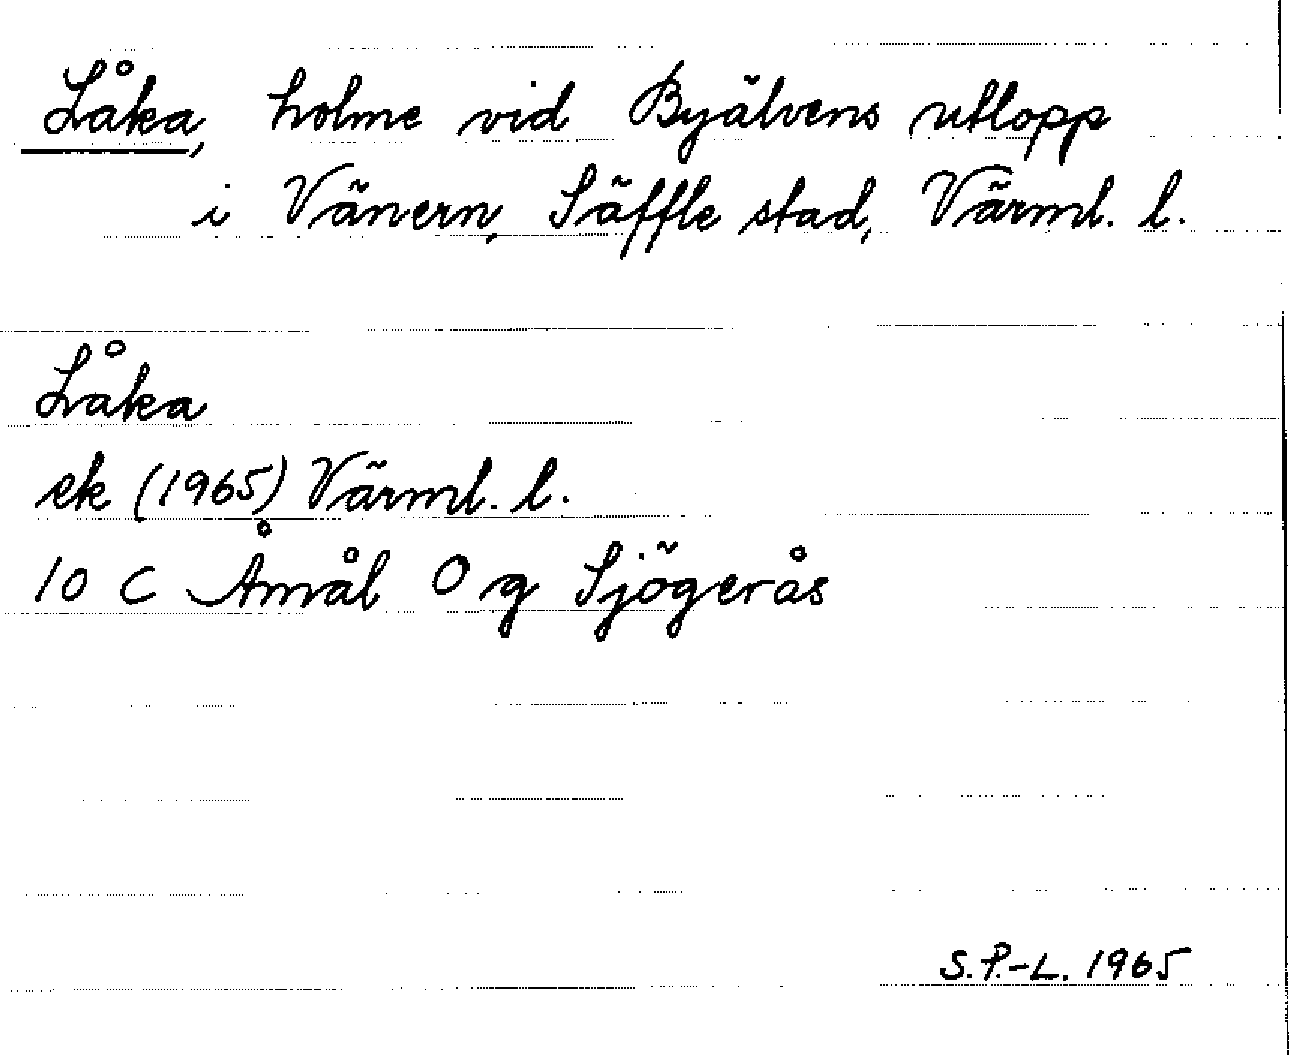 Låka, holme vid Byälvens utlopp
i Vänern, Säffle stad, Värml. l.
Låka
ek (1965) Värml. l.
10 C Åmål O g Sjögerås
S.P.-L. 1965